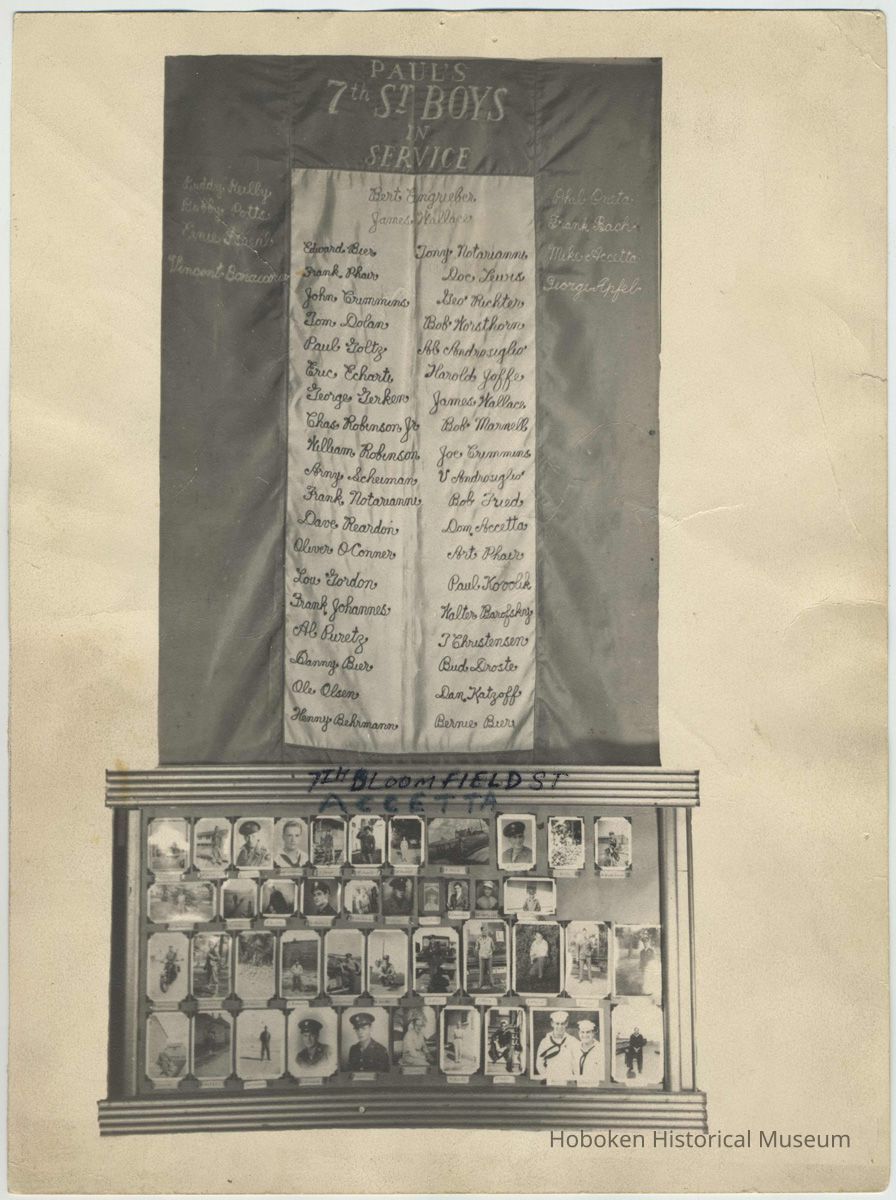 PAUL'S
7th ST BOYS
IN
SERVICE
Bert Engrieber
James Wallace
Reilly
Bobby Potts
Ernie
Vincent
Edward Bier
Frank Phair
John Crimmins
Tom Dolan
Paul Goltz
Eric Echarti
George Gerken
Chas Robinson Jr
William Robinson
Arny Scheiman
Frank Notarianni
Dave Reardon
Oliver O'Conner
Lou Gordon
Frank Johannes
Al Puretz
Danny Bier
Ole Olsen
Henny Behrmann
Tony Notarianni
Doc Lewis
Geo Richter
Bob Horsthorn
Ab Androsiglio
Harold Joffe
James Wallace
Bob Marnell
Joe Crimmins
V Androsiglio
Bob Fried
Dom Accetta
Art Phair
Paul Kovolik
Walter Barofsky
T Christensen
Bud Droste
Dan Katzoff
Bernie Bier
Phil
Frank Bach
Mike Accetta
George Apfel
7TH BLOOMFIELD ST
ACCETTA
Hoboken Historical Museum